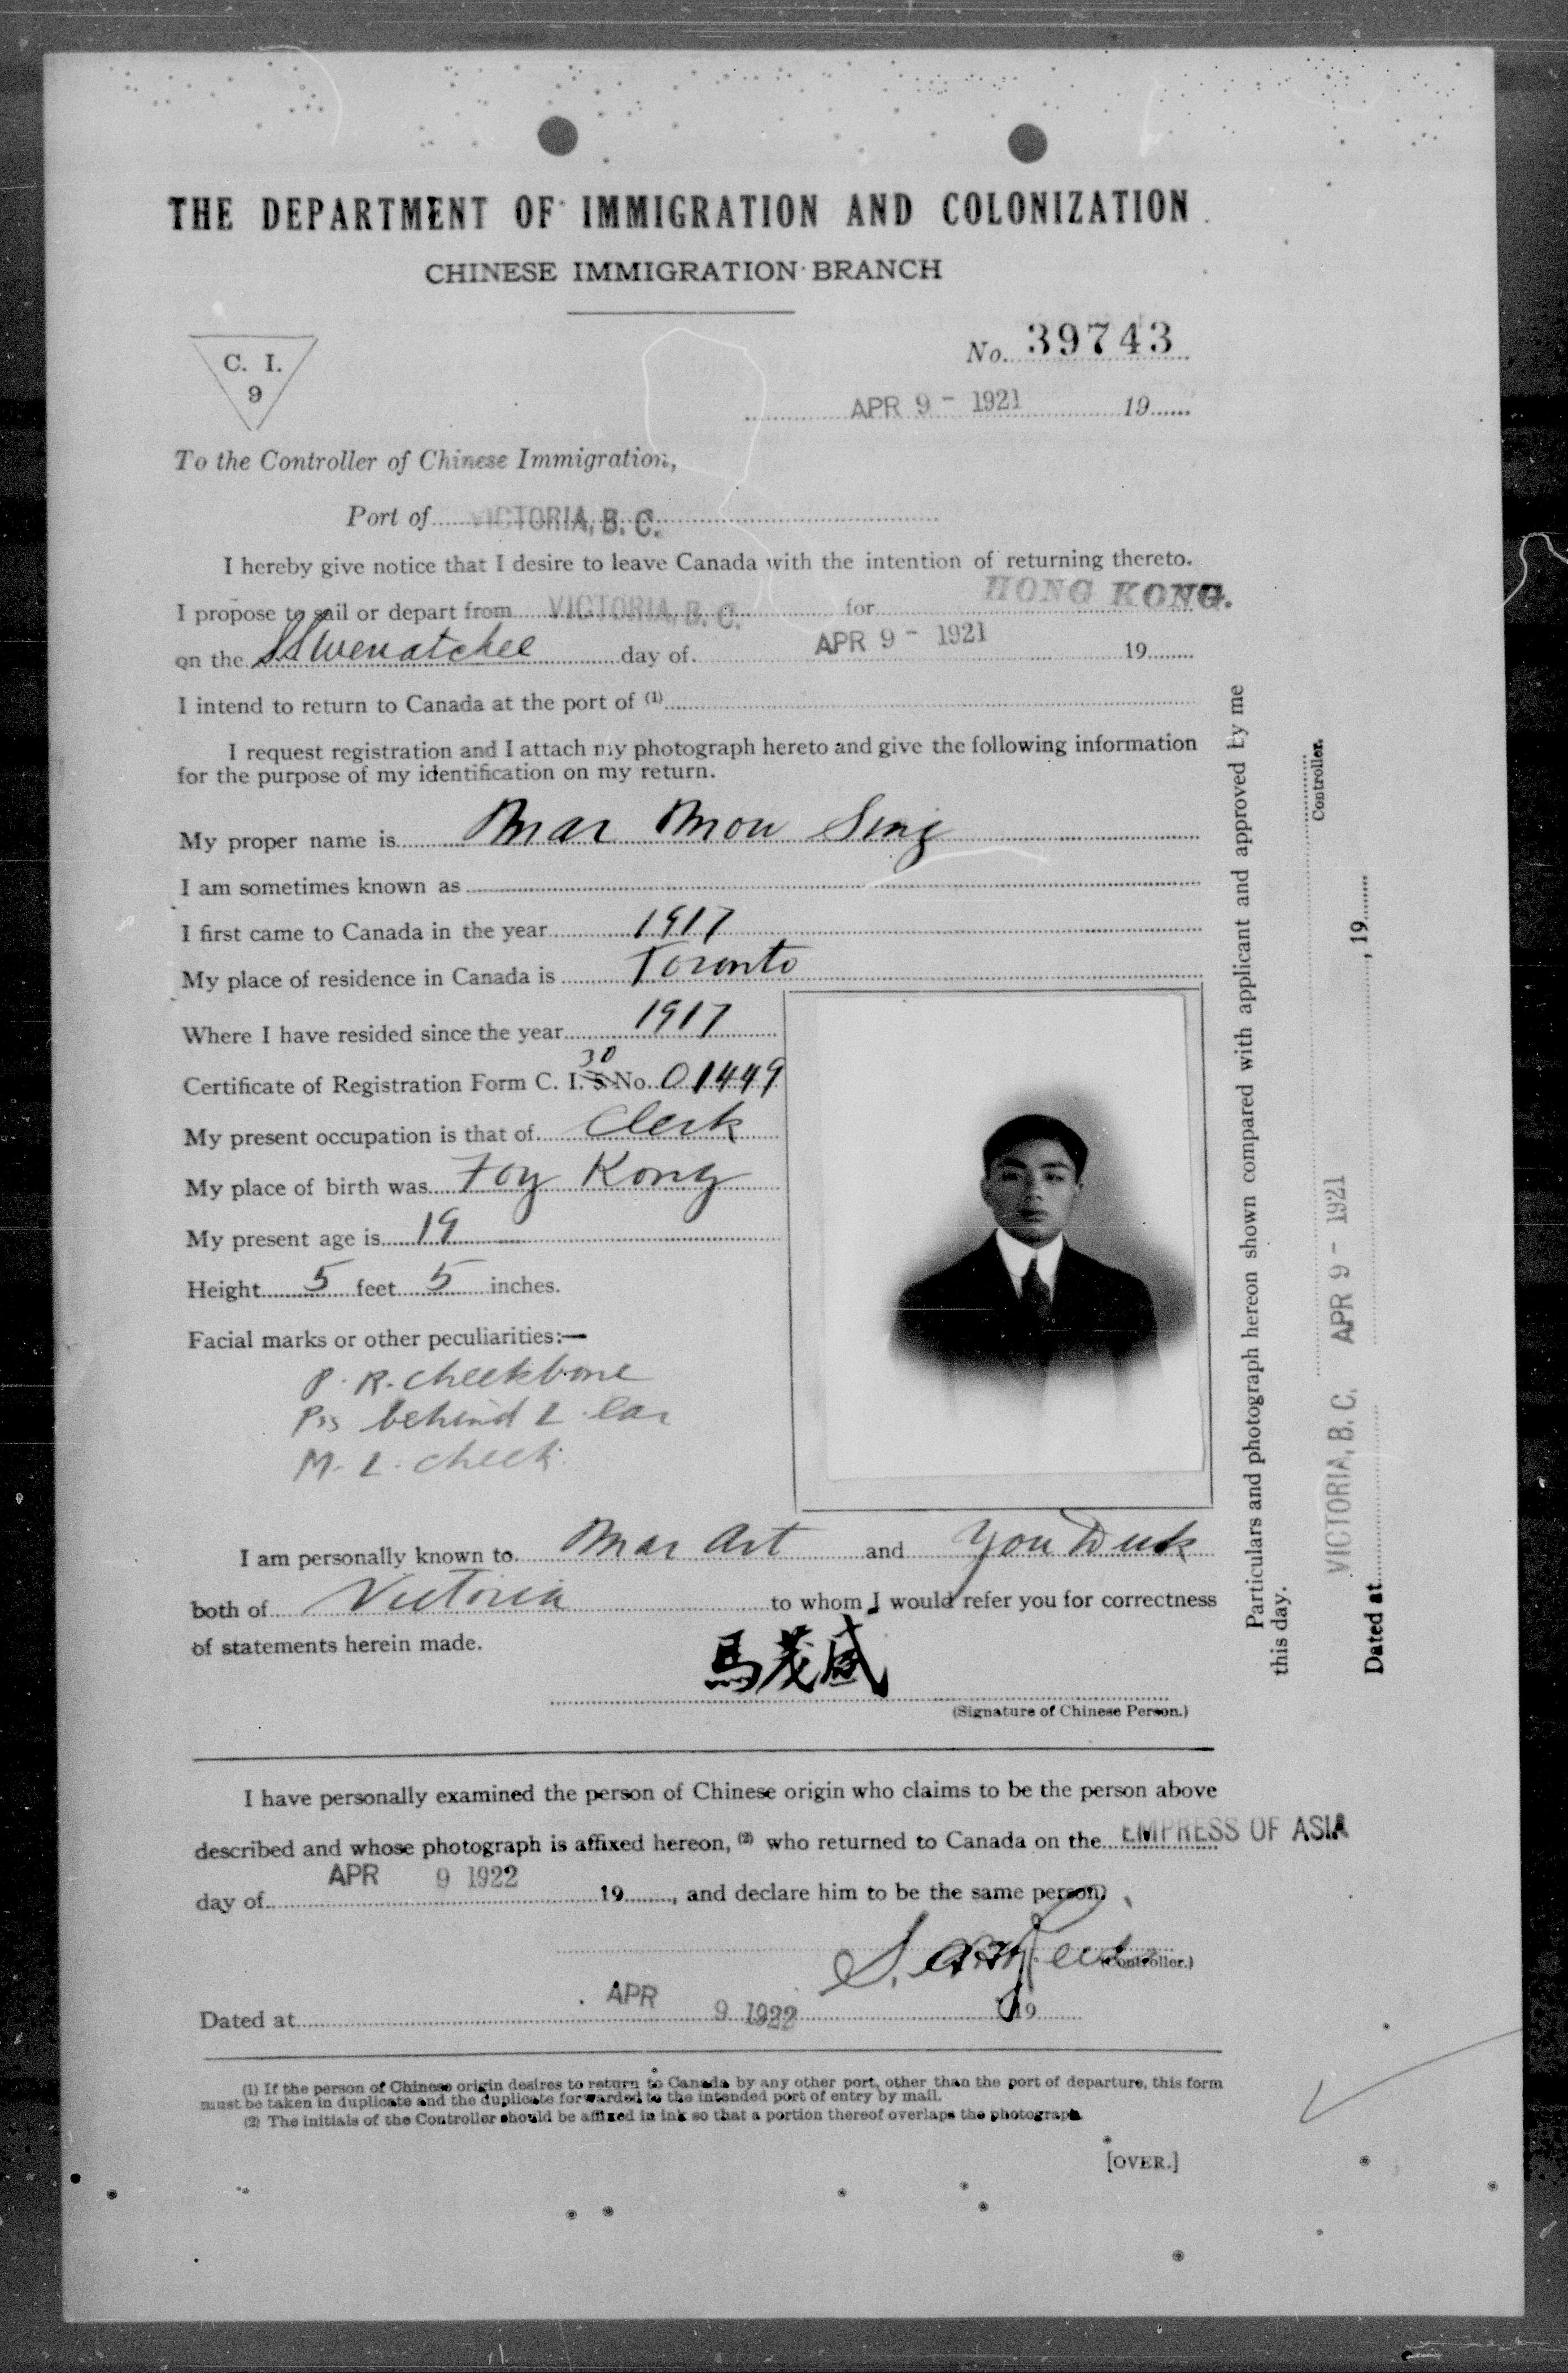 THE DEPARTMENT OF IMMIGRATION AND COLONIZATION
CHINESE IMMIGRATION BRANCH
C. I.
9
No. 39743
APR 9 - 1921 19
To the Controller of Chinese Immigration,
Port of VICTORIA, B. C.
I hereby give notice that I desire to leave Canada with the intention of returning thereto.
I propose to sail or depart from VICTORIA, B. C. for HONG KONG.
on the SS Wenatchee day of APR 9 - 1921 19
I intend to return to Canada at the port of (1)
I request registration and I attach my photograph hereto and give the following information
for the purpose of my identification on my return.
My proper name is Mar Mow Sing
I am sometimes known as
I first came to Canada in the year 1917
My place of residence in Canada is Toronto
Where I have resided since the year 1917
Certificate of Registration Form C. I. 5 30 No. 01449
My present occupation is that of Clerk
My place of birth was Foy Kong
My present age is 19
Height 5 feet 5 inches.
Facial marks or other peculiarities:—
P. R. cheekbone
Pis behind L ear
M. L. cheek.
I am personally known to Mar Art and You Duck
both of Victoria to whom I would refer you for correctness
of statements herein made.
馬茂盛
(Signature of Chinese Person.)
I have personally examined the person of Chinese origin who claims to be the person above
described and whose photograph is affixed hereon, (2) who returned to Canada on the EMPRESS OF ASIA
day of APR 9 1922 19, and declare him to be the same person.
(Controller.)
Dated at APR 9 1922 19
(1) If the person of Chinese origin desires to return to Canada by any other port, other than the port of departure, this form
must be taken in duplicate and the duplicate forwarded to the intended port of entry by mail.
(2) The initials of the Controller should be affixed in ink so that a portion thereof overlaps the photograph
[OVER.]
Particulars and photograph hereon shown compared with applicant and approved by me
this day.
Controller.
Dated at VICTORIA, B. C. APR 9 - 1921, 19